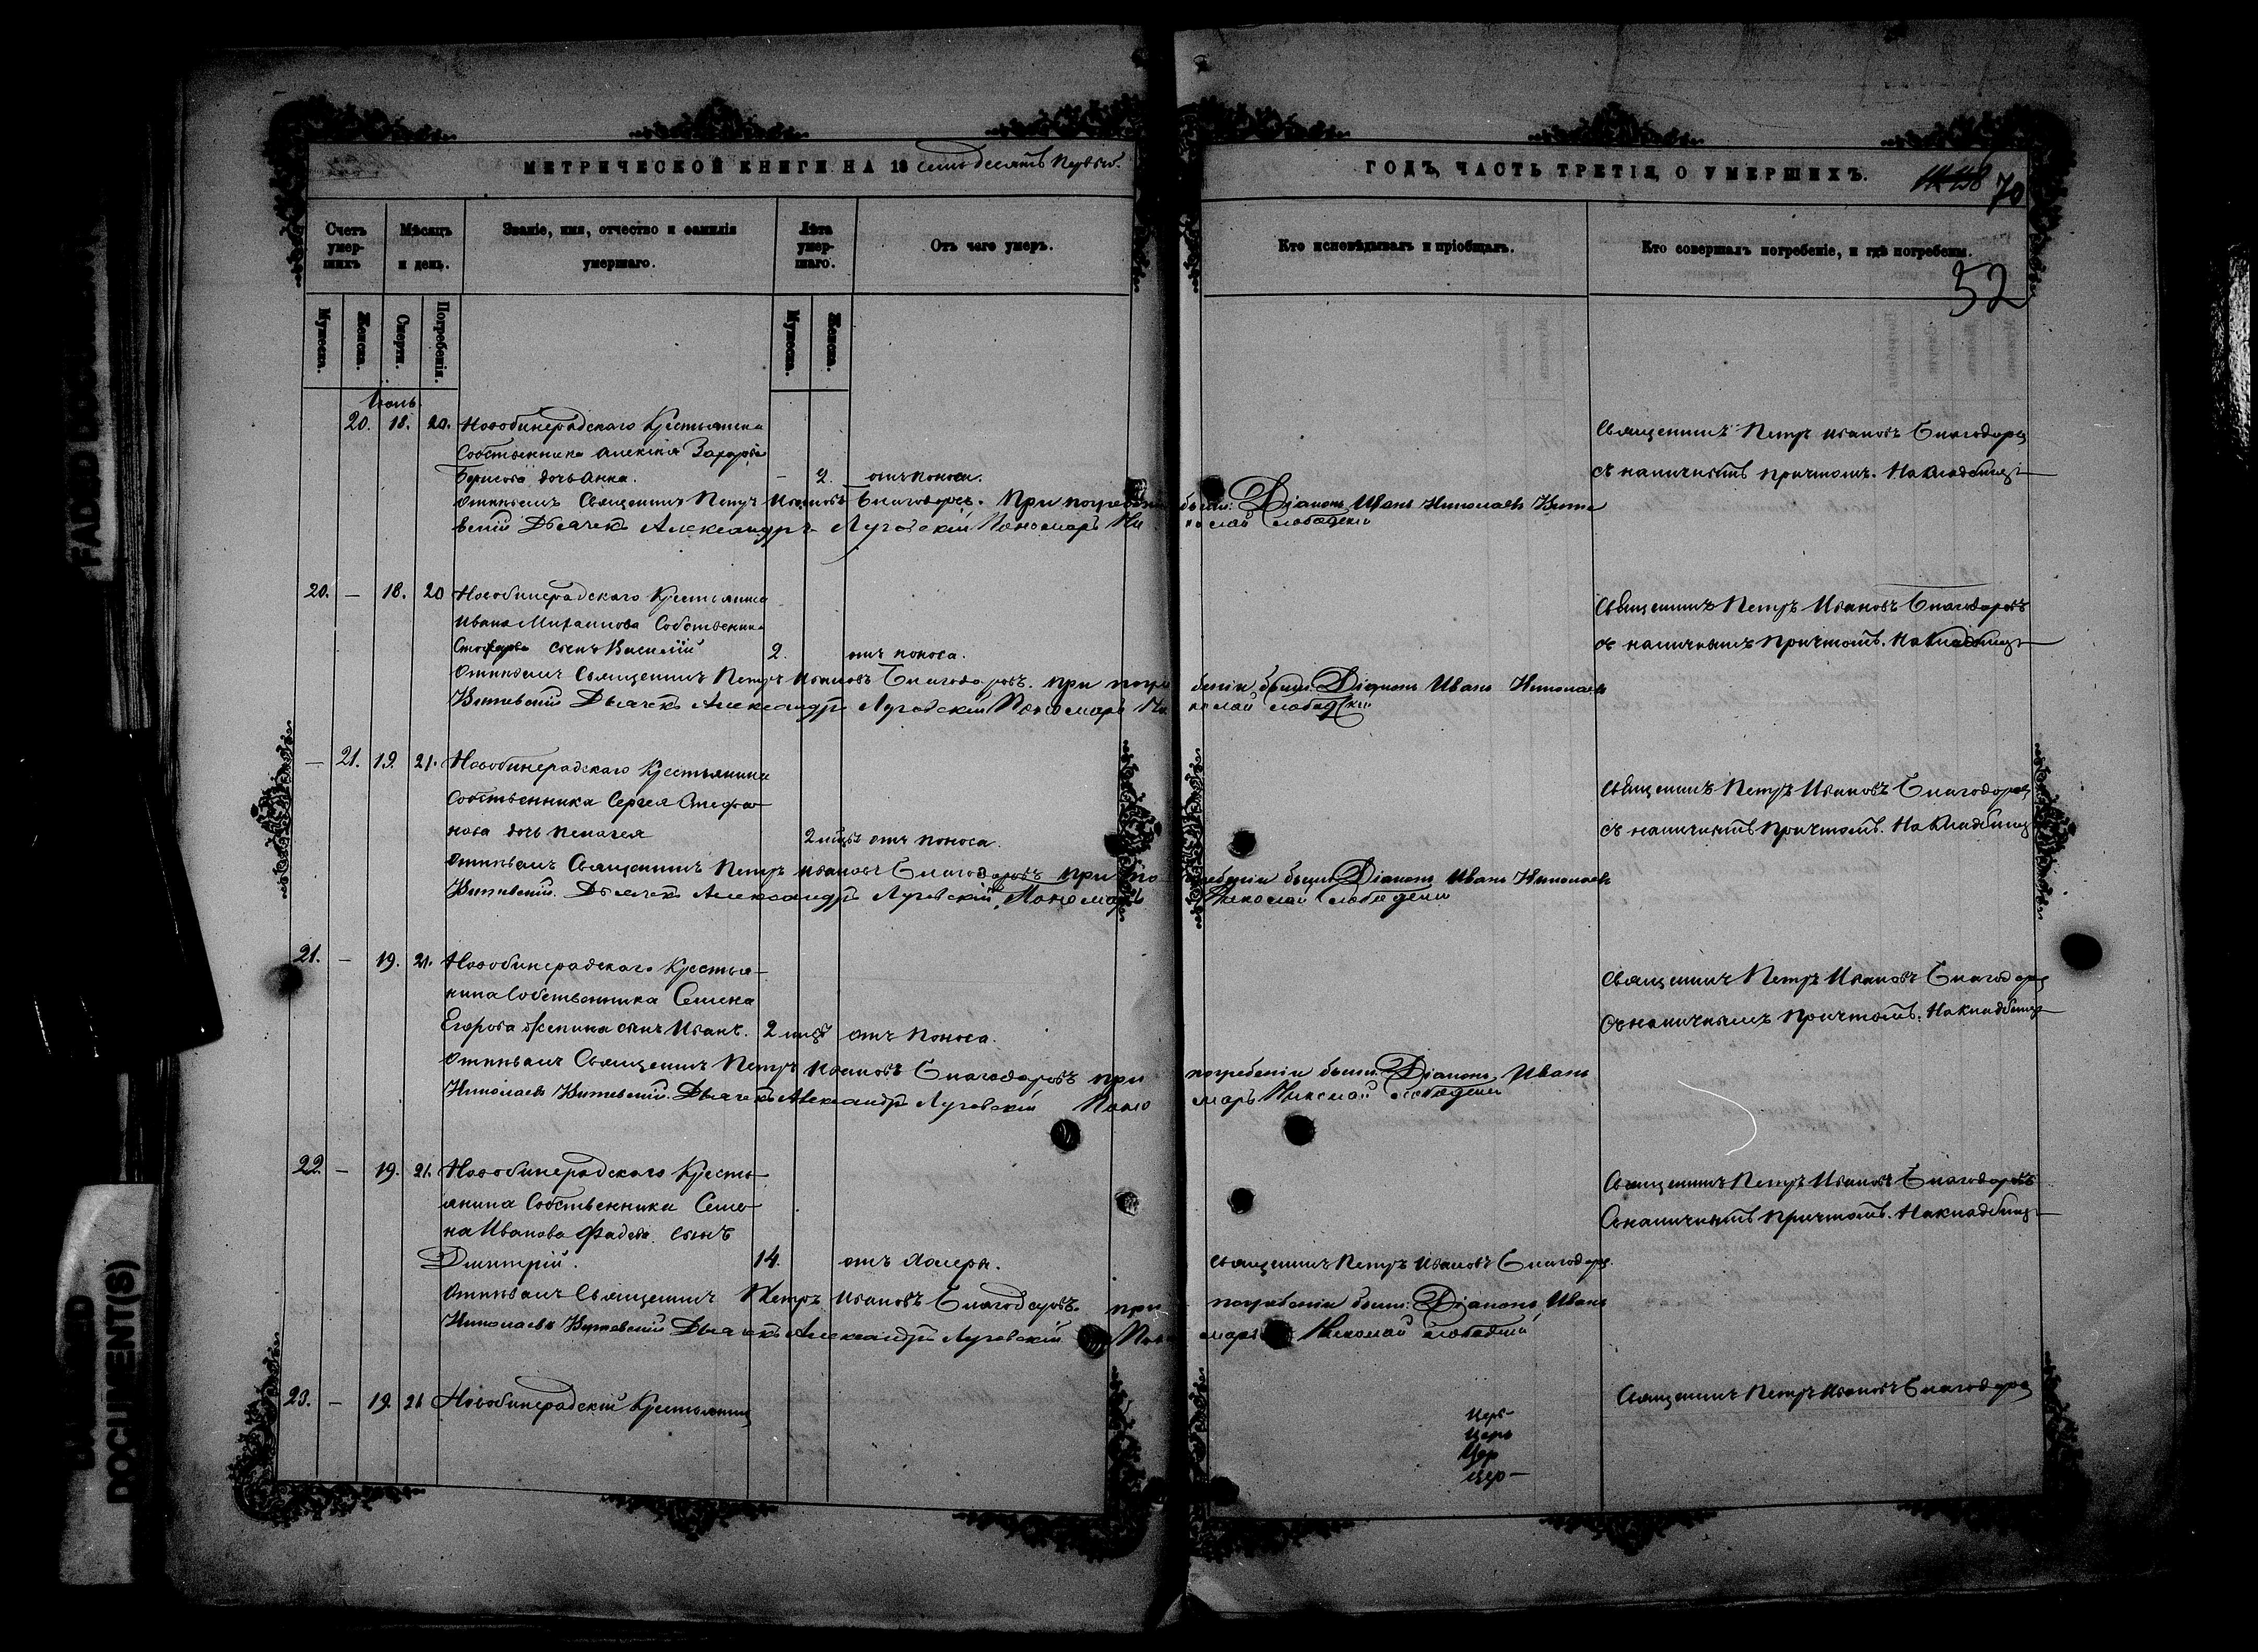 МЕТРИЧЕСКОЙ КНИГИ НА 18 семьдесятъ первый
ГОДЪ, ЧАСТЬ ТРЕТІЯ, О УМЕРШИХЪ.
70
52
Счетъ умер-шихъ
Мѣсяцъ и день.
Званіе, имя, отчество и фамилія умершаго.
Лѣта умер-шаго.
Отъ чего умеръ.
Кто исповѣдывалъ и пріобщалъ.
Кто совершалъ погребеніе, и гдѣ погребены.
Мужеска.
Женска.
Смерти.
Погребенія.
Мужеска.
Женска.
Іюль
20. 18. 20. Новобинерадскаго Крестьянина
Собственника Алексія Захарова
Борисова дочь Анна. – 2. отъ поноса.
Священникъ Петръ Ивановъ Благодаров
съ наличнымъ причтомъ. На Кладбищѣ
Отпѣвалъ Священникъ Петръ Ивановъ Благодаровъ. При погребеніи были: Діаконъ Иванъ Николаевъ Вите
вскій Дьячекъ Александръ Луговскій Пономарь Николай Слободскій
20. – 18. 20 Новобинерадскаго Крестьянина
Ивана Михаилова Собственника
сынъ Василій 2. отъ поноса.
Священникъ Петръ Ивановъ Благодаровъ
съ наличнымъ причтомъ. На Кладбищѣ
Отпѣвалъ Священникъ Петръ Ивановъ Благодаровъ. при погребеніи были: Діаконъ Иванъ Николаевъ
Витевскій Дьячекъ Александръ Луговскій Пономарь Николай Слободскій
– 21. 19. 21. Новобинерадскаго Крестьянина
Собственника Сергея Стефа
нова дочь Пелагея 2 мѣсъ отъ поноса.
Священникъ Петръ Ивановъ Благодаров
съ наличнымъ причтомъ. На Кладбищѣ
Отпѣвалъ Священникъ Петръ Ивановъ Благодаровъ при погребеніи были: Діаконъ Иванъ Николаевъ
Витевскій. Дьячекъ Александръ Луговскій, Пономарь Николай Слободскій
21. – 19. 21. Новобинерадскаго Крестья-
нина Собственника Семена
Егорова сынъ Иванъ. 2 мѣс отъ поноса.
Священникъ Петръ Ивановъ Благодаров
съ наличнымъ причтомъ. На кладбищѣ
Отпѣвалъ Священникъ Петръ Ивановъ Благодаровъ при погребеніи были: Діаконъ, Иванъ
Николаевъ Витевскій. Дьячекъ Александръ Луговскій Пономарь Николай Слободскій
22. – 19. 21. Новобинерадскаго Кресть
янина Собственника Семе
на Иванова Фадеева сынъ
Дмитрій. 14. отъ холеры.
Священникъ Петръ Ивановъ Благодаров.
Священникъ Петръ Ивановъ Благодаровъ
съ наличнымъ причтомъ. На кладбищѣ
Отпѣвалъ Священникъ Петръ Ивановъ Благодаровъ. при погребеніи были: Діаконъ Иванъ
Николаевъ Витевскій Дьячекъ Александръ Луговскій Пономарь Николай Слободскій
23. – 19. 21 Новобинерадскій Крестьянинъ
Священникъ Петръ Ивановъ Благодаров
Церъ-
Церъ
Цер
Цер-
DOCUMENT(S)